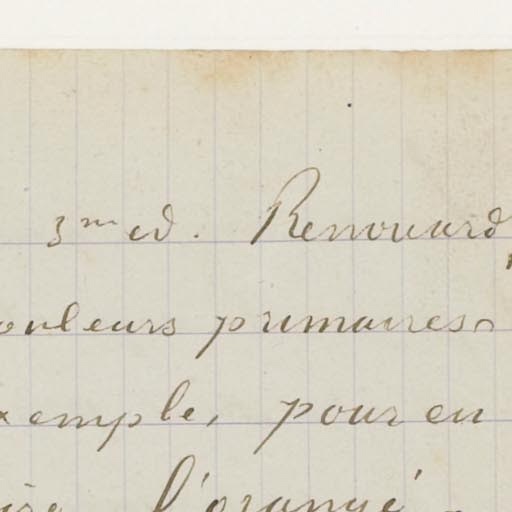 3me ed. Renouard
ouleurs primaires
xemple, pour en
l'orangé -